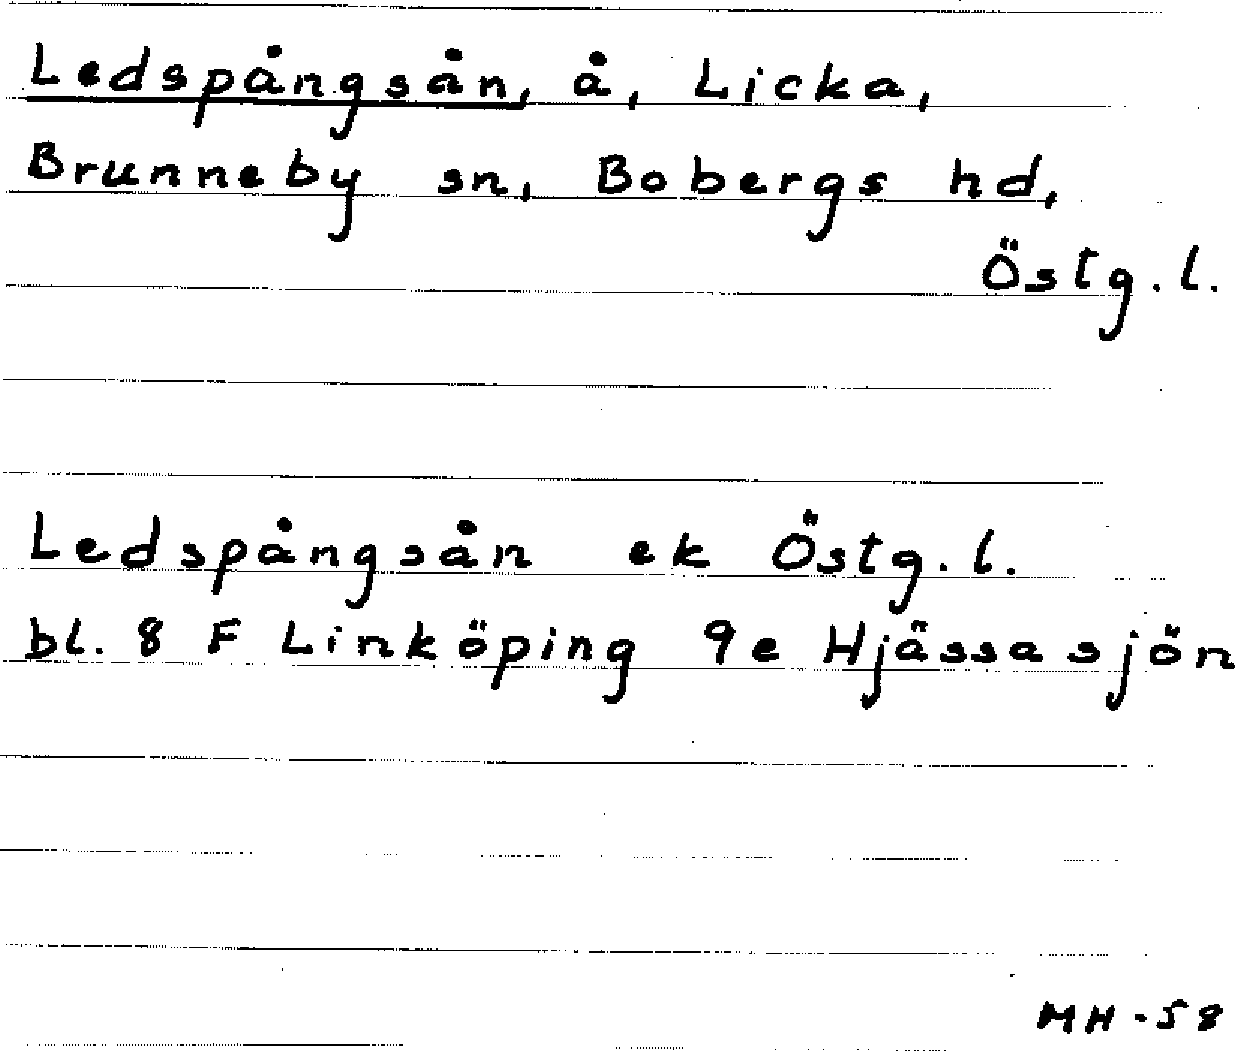 Ledspångsån, å, Licka,
Brunneby sn, Bobergs hd,
Östg.l.
Ledspångsån ek Östg.l.
bl. 8 F Linköping 9e Hjässasjön
MH-58